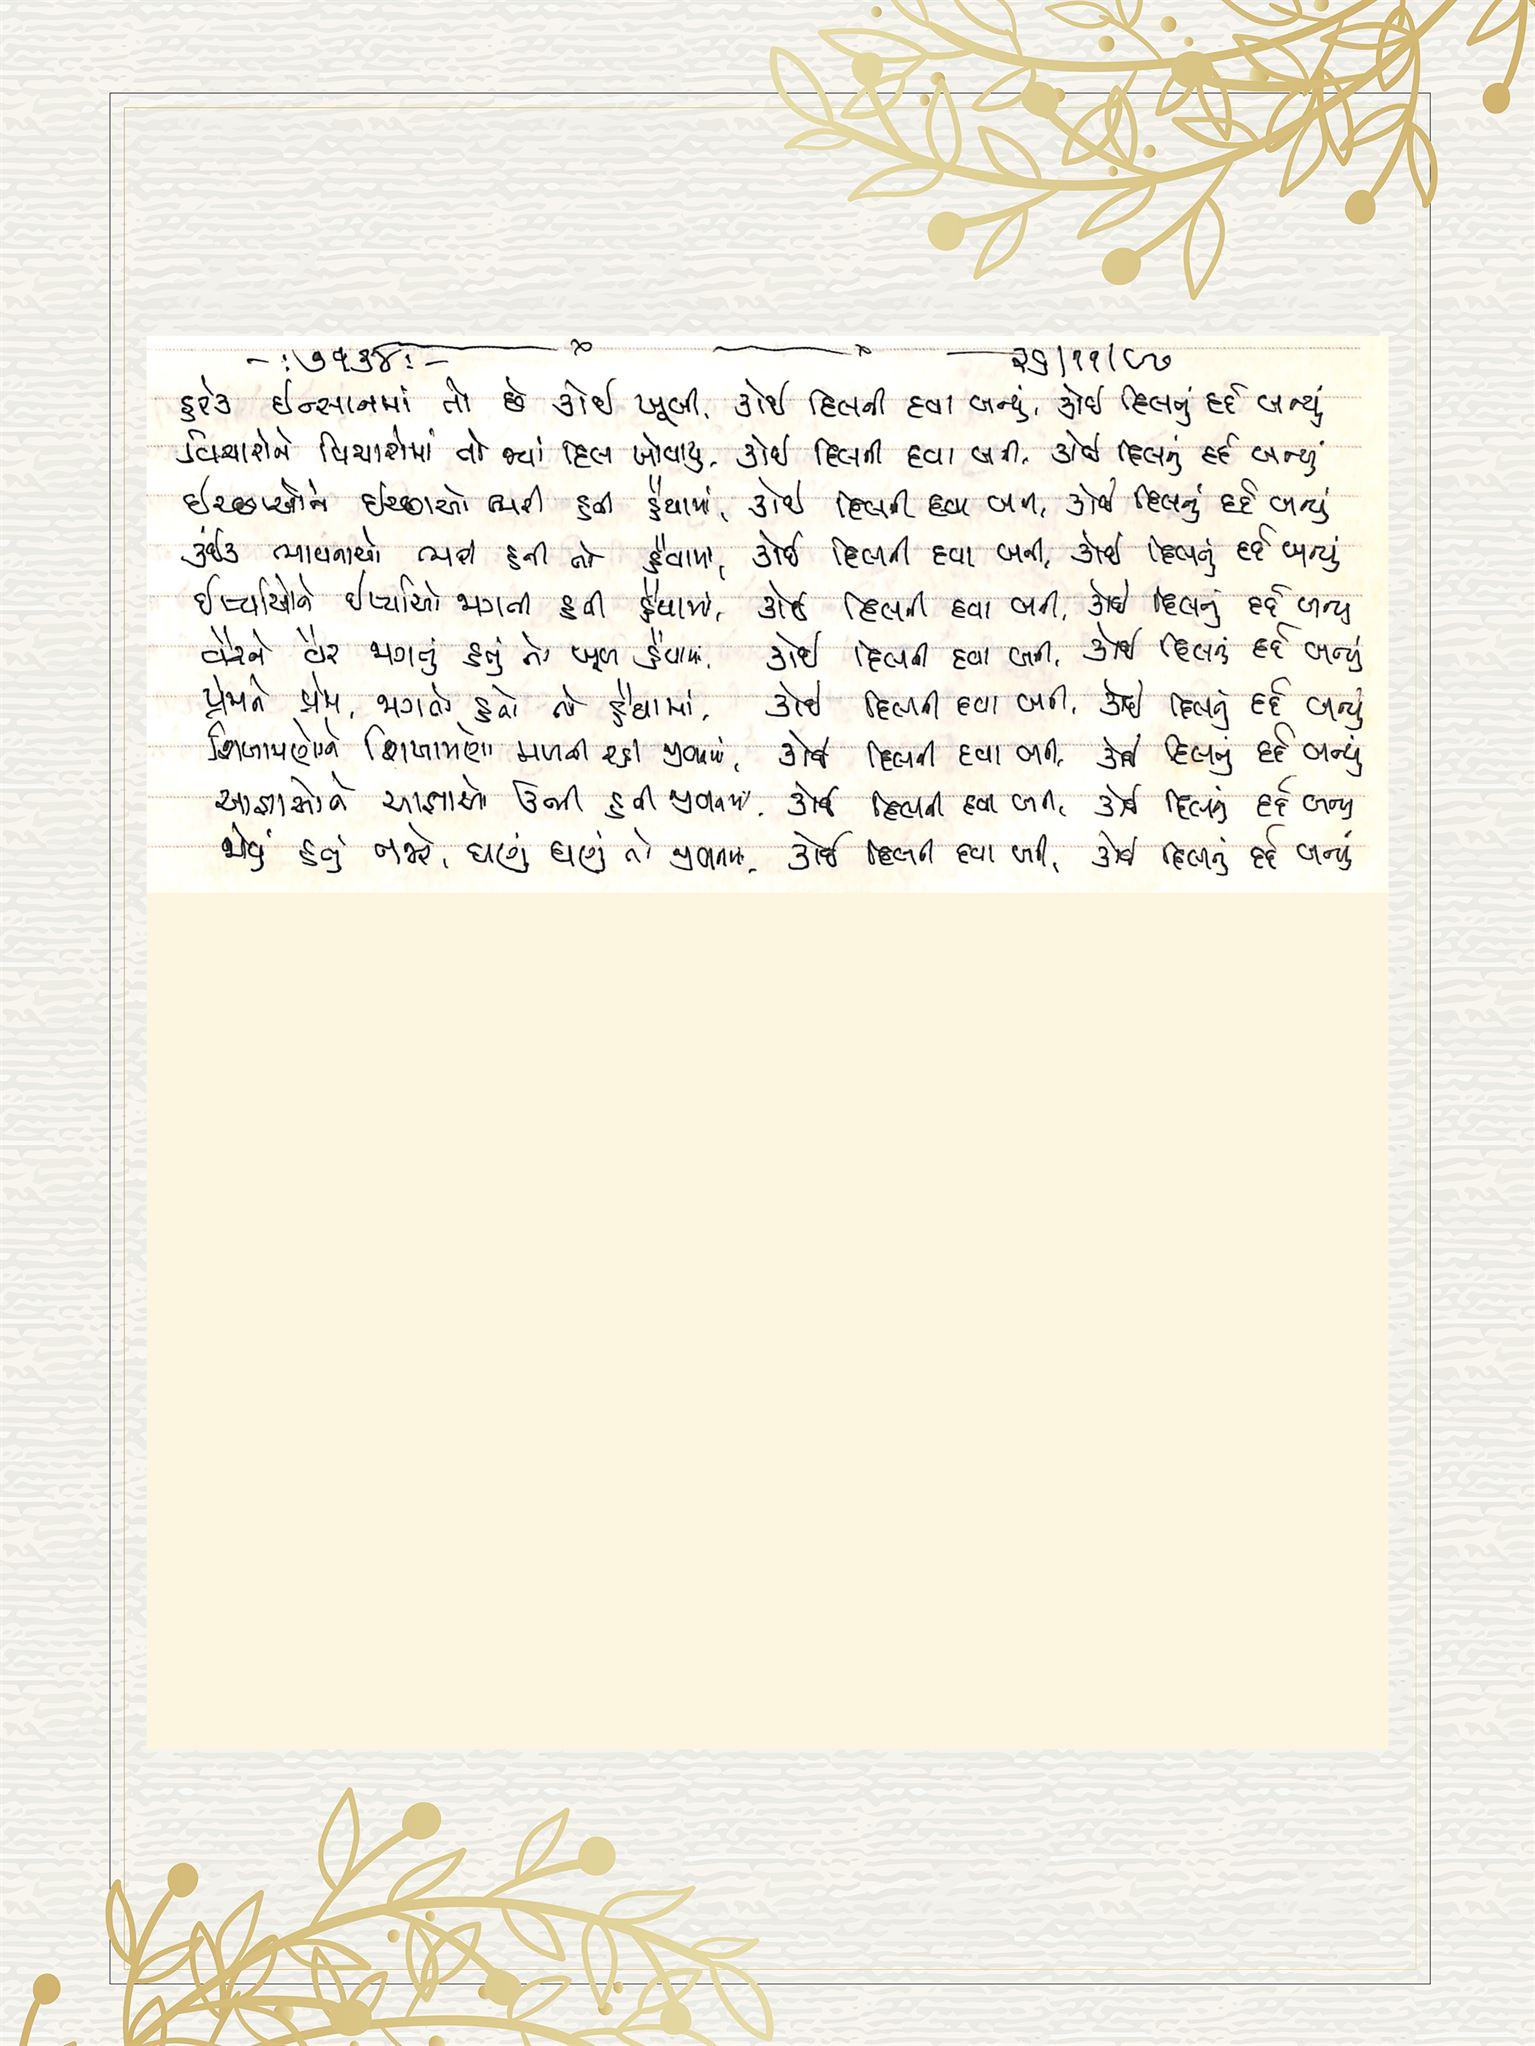 -:૭૧૩૪:- ૨૬/૧૧/૯૭
હરેક ઈન્સાનમાં તો છે કોઈ ખૂબી, કોઈ દિલની દવા બન્યું, કોઈ દિલનું દર્દ બન્યું
વિચારોને વિચારોમાં તો જ્યાં દિલ ખોવાયું, કોઈ દિલની દવા બની, કોઈ દિલનું દર્દ બન્યું
ઈચ્છાઓને ઈચ્છાઓ ભરી હતી હૈયામાં, કોઈ દિલની દવા બની, કોઈ દિલનું દર્દ બન્યું
કંઈક ભાવનાઓ ભરી હતી તો હૈયામાં, કોઈ દિલની દવા બની, કોઈ દિલનું દર્દ બન્યું
ઈર્ષ્યાઓને ઈર્ષ્યાઓ જાગતી હતી હૈયામાં, કોઈ દિલની દવા બની, કોઈ દિલનું દર્દ બન્યુ
વેરને વેર જાગતું હતું તો ખૂબ હૈયામાં, કોઈ દિલની દવા બની, કોઈ દિલનું દર્દ બન્યું
પ્રેમને પ્રેમ, જાગતો હતો તો હૈયામાં, કોઈ દિલની દવા બની, કોઈ દિલનું દર્દ બન્યું
શિખામણોને શિખામણો મળતી રહી જીવનમાં, કોઈ દિલની દવા બની, કોઈ દિલનું દર્દ બન્યું
આજ્ઞાઓને આજ્ઞાઓ ઉભી હતી જીવનમાં, કોઈ દિલની દવા બની, કોઈ દિલનું દર્દ બન્યુ
જોયું હતું નજરે, ઘણું ઘણું તો જીવનમાં, કોઈ દિલની દવા બની, કોઈ દિલનું દર્દ બન્યું